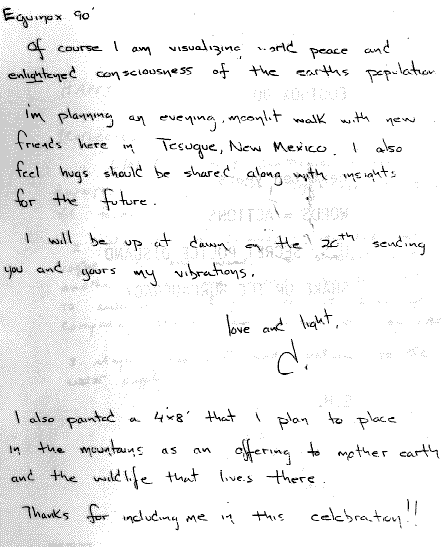 Equinox 90'
Of course I am visualizing world peace and
enlightened consciousness of the earths population
I'm planning an evening, moonlit walk with new
friends here in Tesuque, New Mexico. I also
feel hugs should be shared along with insights
for the future.
I will be up at dawn on the 20th sending
you and yours my vibrations.
love and light,
d.
I also painted a 4'x8' that I plan to place
in the mountains as an offering to mother earth
and the wildlife that lives there.
Thanks for including me in this celebration!!